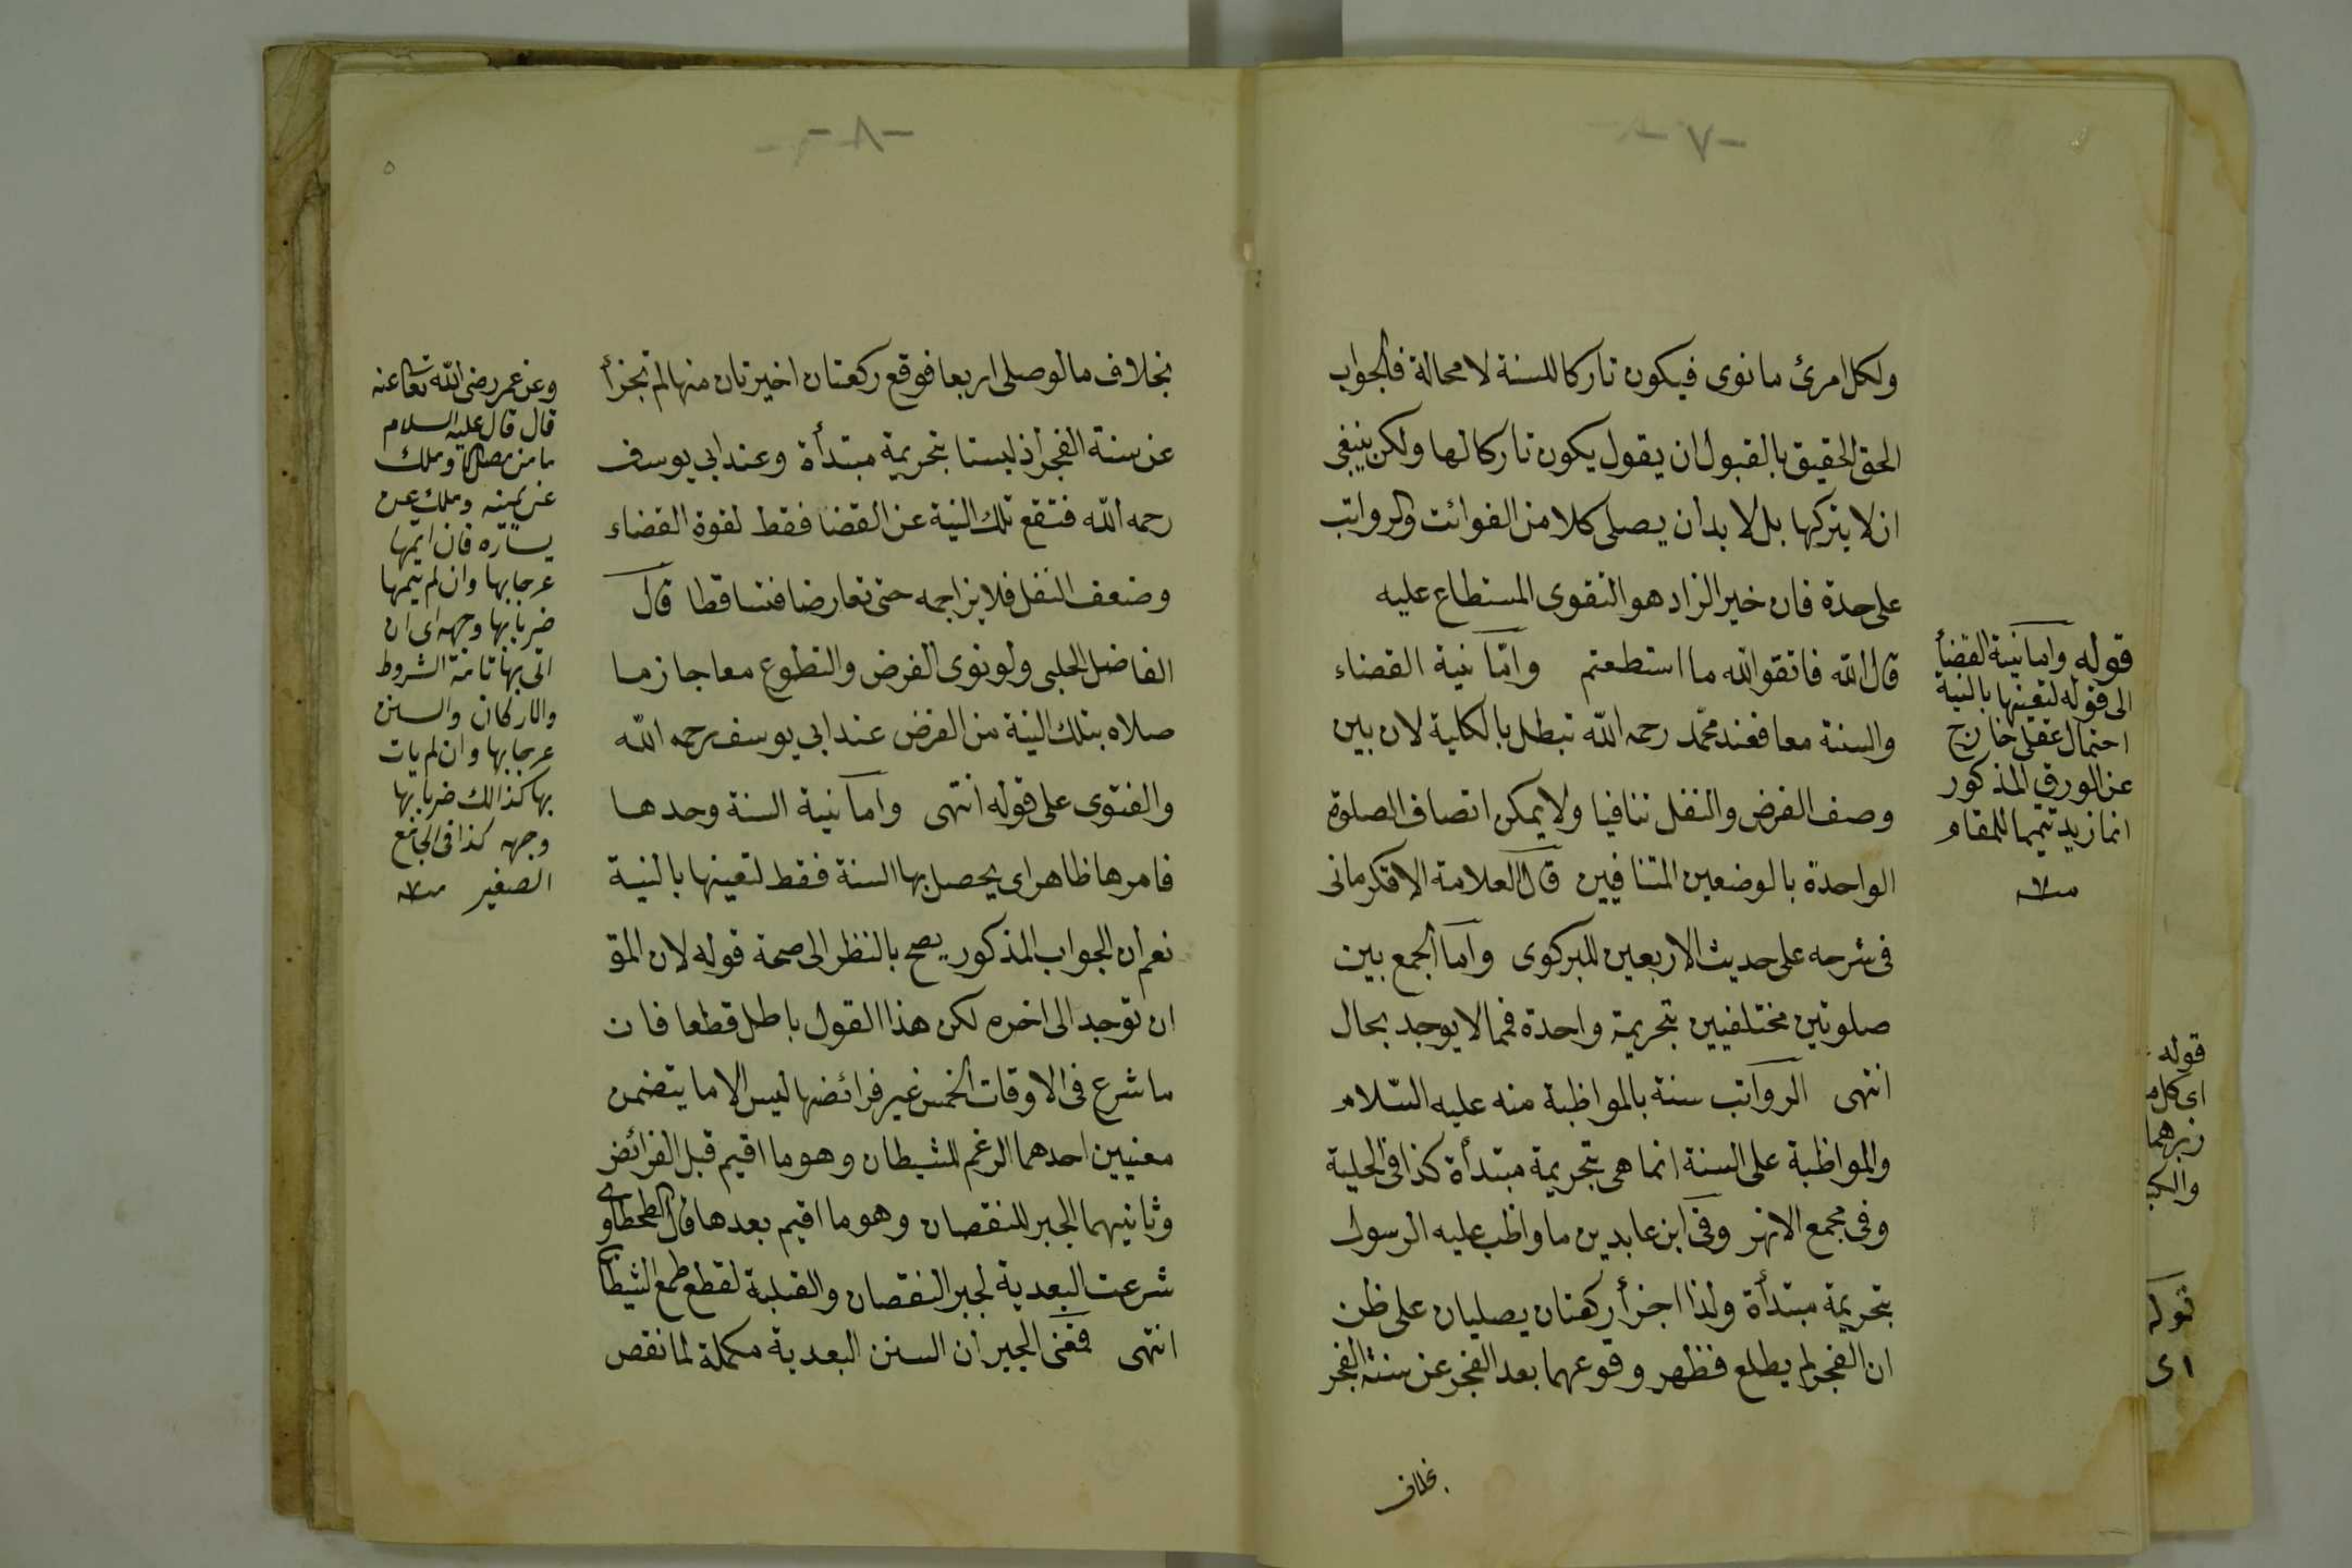 -٧-
ولكل امرئ ما نوى فيكون تاركا للسنة لا محالة فالجواب
الحق الحقيق بالقبول ان يقول يكون تاركا لها ولكن ينبغى
ان لا يتركها بل لا بد ان يصلى كلا من الفوائت والرواتب
على حدة فان خير الزاد هو التقوى المستطاع عليه
قال الله فاتقوا الله ما استطعتم وامّا نية القضاء
والسنة معا فعند محمّد رحمه الله تبطل بالكلية لان بين
وصف الفرض والنفل تنافيا ولا يمكن اتصاف الصلوة
الواحدة بالوضعين المتنافيين قال العلامة الاقكرمانى
فى شرحه على حديث الاربعين للبركوى واما الجمع بين
صلوتين مختلفيين بتحريمة واحدة فمما لا يوجد بحال
انتهى الرواتب سنة بالمواظبة منه عليه السّلام
والمواظبة على السنة انما هى بتحريمة مبتدأة كذا فى الحلية
وفى مجمع الانهر وفى ابن عابدين ما واظب عليه الرسول
بتحريمة مبتدأة ولذا اجزأ ركعتان يصليان على ظن
ان الفجر لم يطلع فظهر وقوعهما بعد الفجر عن سنة الفجر
بخلاف
قوله واما نية القضأ
الى قوله لتعينها بالنية
احتمال عقلى خارج
عن الورق المذكور
انما زيد تتميما للمقام
منه
قوله
اى كل م
زبرهما
قوله
اى
-٨-
٥
بخلاف ما لو صلى اربعا فوقع ركعتان اخيرتان منها لم تجزأ
عن سنة الفجر اذ ليستا بتحريمة مبتدأة وعند ابي يوسف
رحمه الله فتقع تلك النية عن القضا فقط لقوة القضاء
وضعف النفل فلا يزاحمه حتى تعارضا فتساقطا قال
الفاضل الحلبى ولو نوى الفرض والتطوع معا جاز ما
صلاه بتلك النية من الفرض عند ابي يوسف رحمه الله
والفتوى على قوله انتهى واما نية السنة وحدها
فامرها ظاهر اى يحصل بها السنة فقط لتعينها بالنية
نعم ان الجواب المذكور يصح بالنظر الى صحة قوله لان المق
ان توجد الى اخره لكن هذا القول باطل قطعا فان
ما شرع فى الاوقات الخمس غير فرائضها ليس الا ما يتضمن
معنيين احدهما الرغم للشيطان وهو ما اقيم قبل الفرائض
وثانيهما الجبر للنقصان وهو ما اقيم بعدها قال الطحطاوى
شرعت البعدية لجبر النقصان والقبلية لقطع طمع الشيطان
انتهى فمعنى الجبر ان السنن البعدية مكملة لما نقص
وعن عمر رضى الله تعالى عنه
قال قال عليه السلام
ما من مصلى الا وملك
عن يمينه وملك عن
يساره فان اتمها
عرجا بها وان لم يتمها
ضربا بها وجهه اى ان
اتى بها تامة الشروط
والاركان والسنن
عرجا بها وان لم يات
بها كذالك ضربا بها
وجهه كذا فى الجامع
الصغير منه